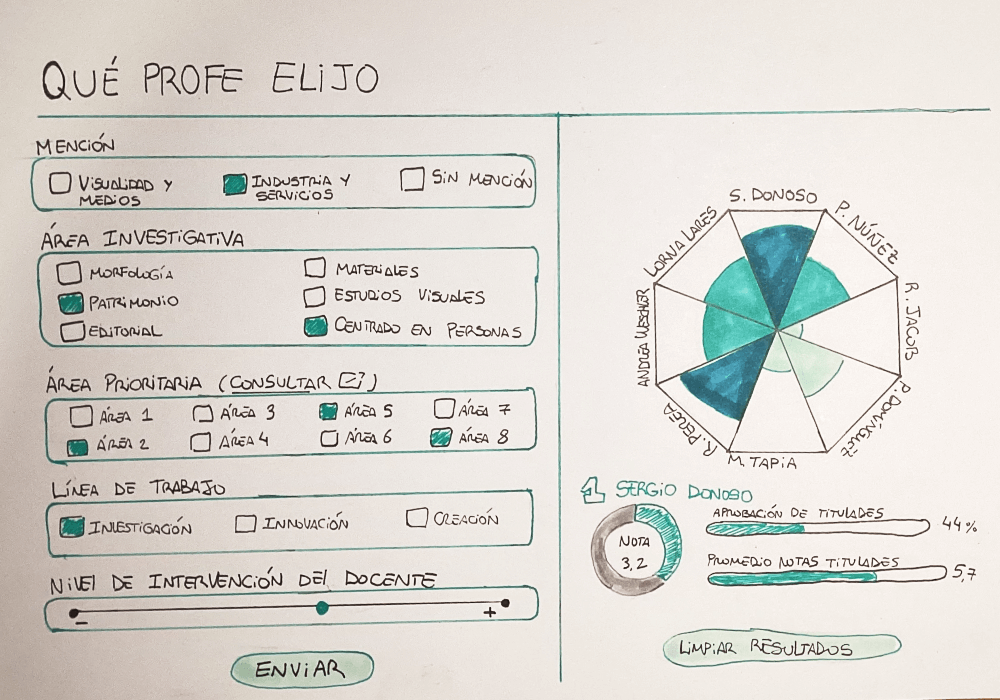 QUÉ PROFE ELIJO
MENCIÓN
VISUALIDAD Y
MEDIOS
INDUSTRIA Y
SERVICIOS
SIN MENCIÓN
ÁREA INVESTIGATIVA
MORFOLOGÍA
MATERIALES
PATRIMONIO
ESTUDIOS VISUALES
EDITORIAL
CENTRADO EN PERSONAS
ÁREA PRIORITARIA (CONSULTAR)
ÁREA 1
ÁREA 3
ÁREA 5
ÁREA 7
ÁREA 2
ÁREA 4
ÁREA 6
ÁREA 8
LÍNEA DE TRABAJO
INVESTIGACIÓN
INNOVACIÓN
CREACIÓN
NIVEL DE INTERVENCIÓN DEL DOCENTE
- +
ENVIAR
S. DONOSO
P. NÚÑEZ
R. JACOB
P. DOMÍNGUEZ
M. TAPIA
R. PEREA
ANDREA WECHSLER
LORNA LARES
SERGIO DONOSO
NOTA
3,2
APROBACIÓN DE TITULADES
44%
PROMEDIO NOTAS TITULADES
5,7
LIMPIAR RESULTADOS